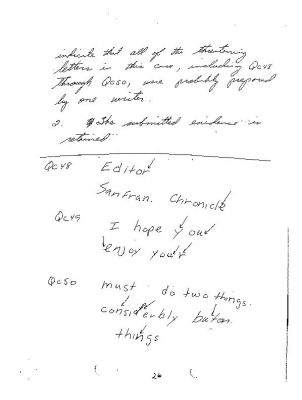 indicate that all of the threatening
letters in this case, including Qc48
through Qc50, were probably prepared
by one writer.
2. The submitted evidence is
retained
Qc48 Editor
San Fran. Chronicle
Qc49 I hope you
enjoy your
Qc50 must do two things.
considerbly
things
26